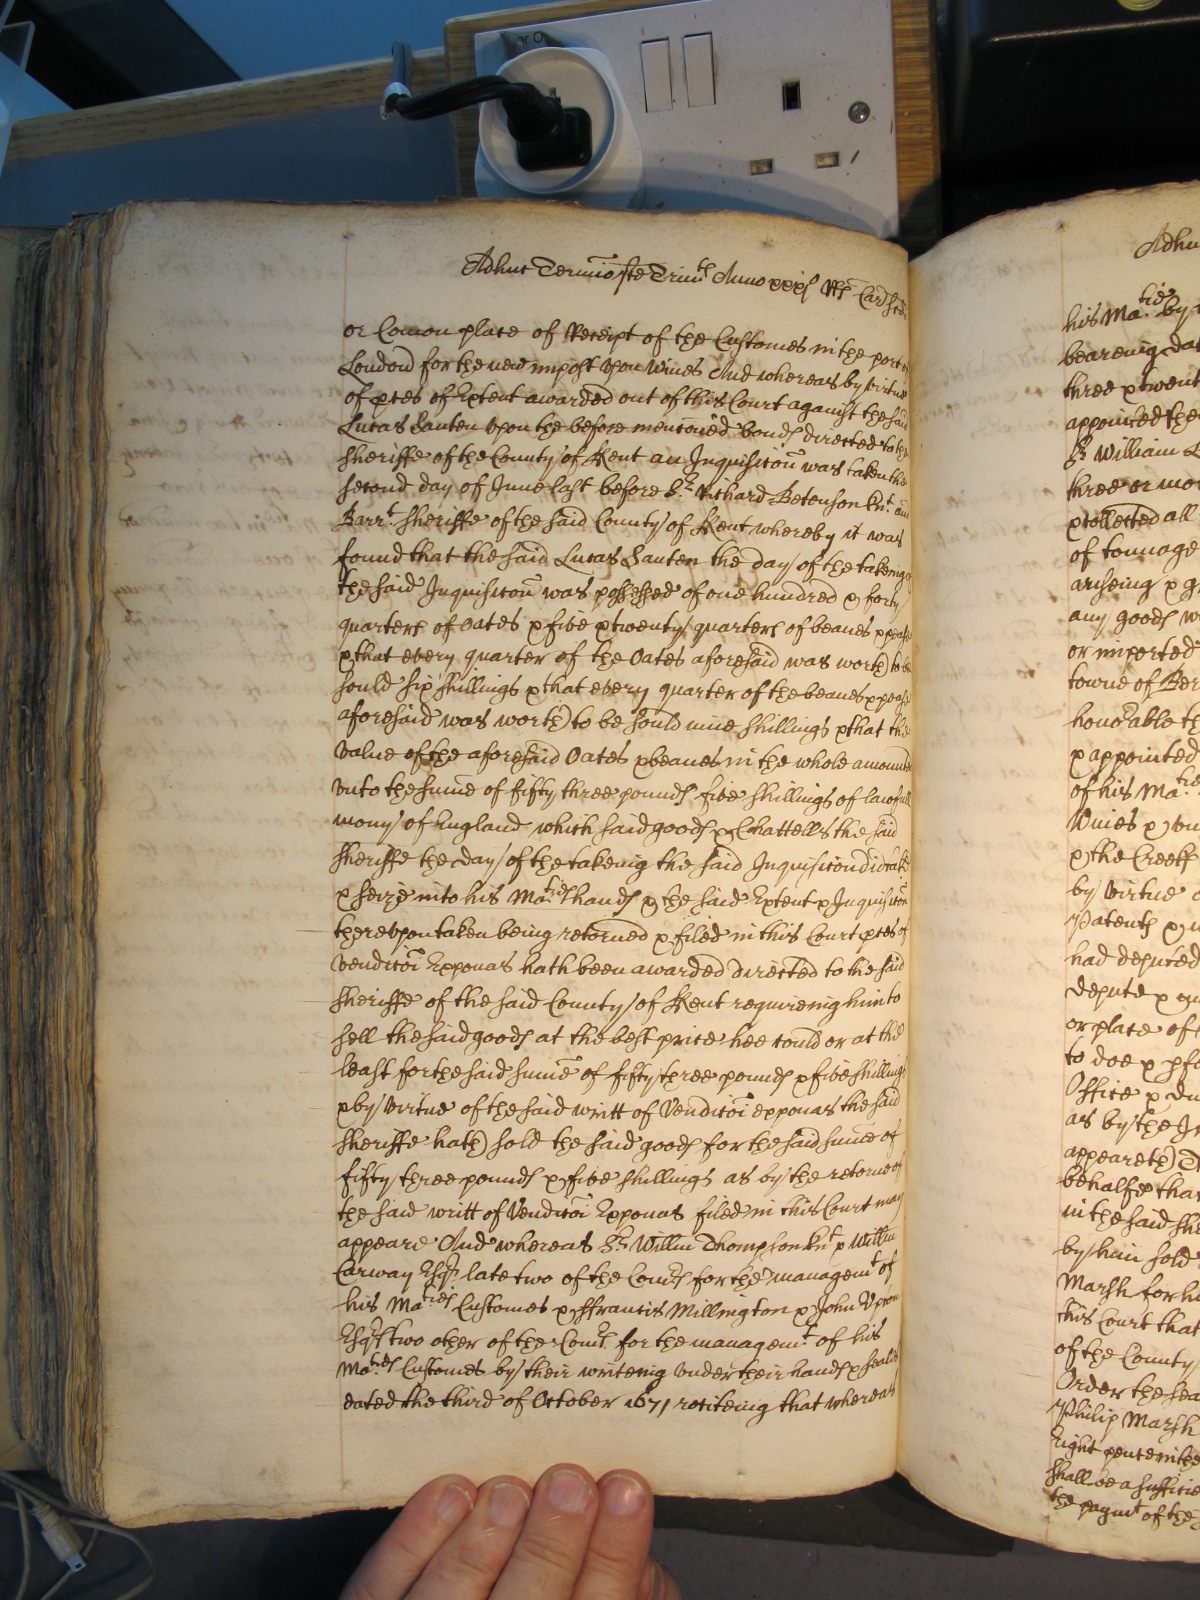 Adhuc Termio ste Trinitis Anno xxxj Rs Car Scdi
or Comon place of Receipt of the Customes in the port of
London for the new impost vpon wines And whereas by virtue
of pces of Extent awarded out of this Court against the said
Lucas Santen vpon the before menconed bonds directed to the
Sheriffe of the County of Kent an Inquisicon was taken the
second day of June last before Sr Richard Betenson Knt and
Barrt Sheriffe of the said County of Kent whereby it was
found that the said Lucas Santen the day of the takeing of
the said Inquisicon was possessed of one hundred & forty
quarters of Oates & five & twenty quarters of beanes & pease
& that every quarter of the Oates aforesaid was worth to be
sould six shillings & that every quarter of the beanes & pease
aforesaid was worth to be sould nine shillings & that the
value of the aforesaid Oates & beanes in the whole amounted
vnto the sume of fifty three pounds five shillings of lawfull
mony of England which said goods & Chattells the said
Sheriffe the day of the takeing the said Inquisicon did take
& seize into his Maties hands & the said Extent & Inquisicon
therevpon taken being retorned & filed in this Court pces of
Vendicoi Exponas hath been awarded directed to the said
Sheriffe of the said County of Kent requireing him to
sell the said goods at the best price hee could or at the
least for the said sume of fifty three pounds & five shillings
& by virtue of the said writt of Vendicoi exponas the said
Sheriffe hath sold the said goods for the said sume of
fifty three pounds & five shillings as by the retorne of
the said writt of Vendicoi Exponas filed in this Court may
appeare And whereas Sr Willm Thompson Knt & Willm
Carway Esqr late two of the Comrs for the managemt of
his Maties Customes & ffrancis Millington & John Vpton
Esqrs two other of the Comrs for the managemt of his
Maties Customes by their writeing vnder their hands & seales
dated the third of October 1671 reciteing that whereas
Adhu
his Maties by
beareing dat
three & twent
appointed the
Sr William
three or mor
& collected all
of tonnage
ariseing & g
any goods
or imported
towne of Ber
honorable th
& appointed
of his Maties
Wines &
& the Creeks
by virtue
Patents &
had deputed
depute &
or place of
to doe & pfo
Office &
as by the In
appeareth
behalfe that
in the said She
by him sold
Marsh for h
this Court that
of the County
Order the sea
Philip Marsh
Right
shall be a sufficie
the paymt of the